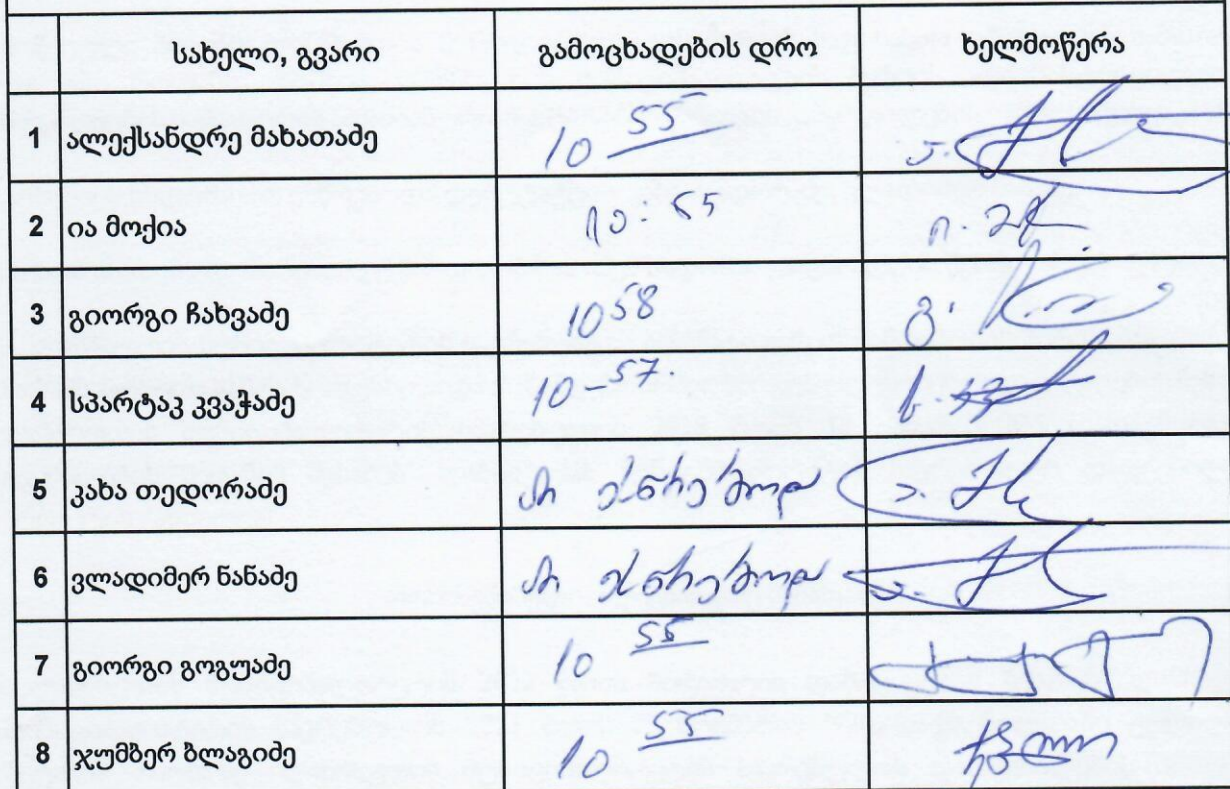 სახელი, გვარი გამოცხადების დრო ხელმოწერა
1 ალექსანდრე მახათაძე 10 55
2 ია მოქია 10-55
3 გიორგი ჩახვაძე 10 58
4 სპარტაკ კვაჭაძე 10-57.
5 კახა თედორაძე არ ესწრებოდა
6 ვლადიმერ ნანაძე არ ესწრებოდა
7 გიორგი გოგუაძე 10 55
8 ჯუმბერ ბლაგიძე 10 55